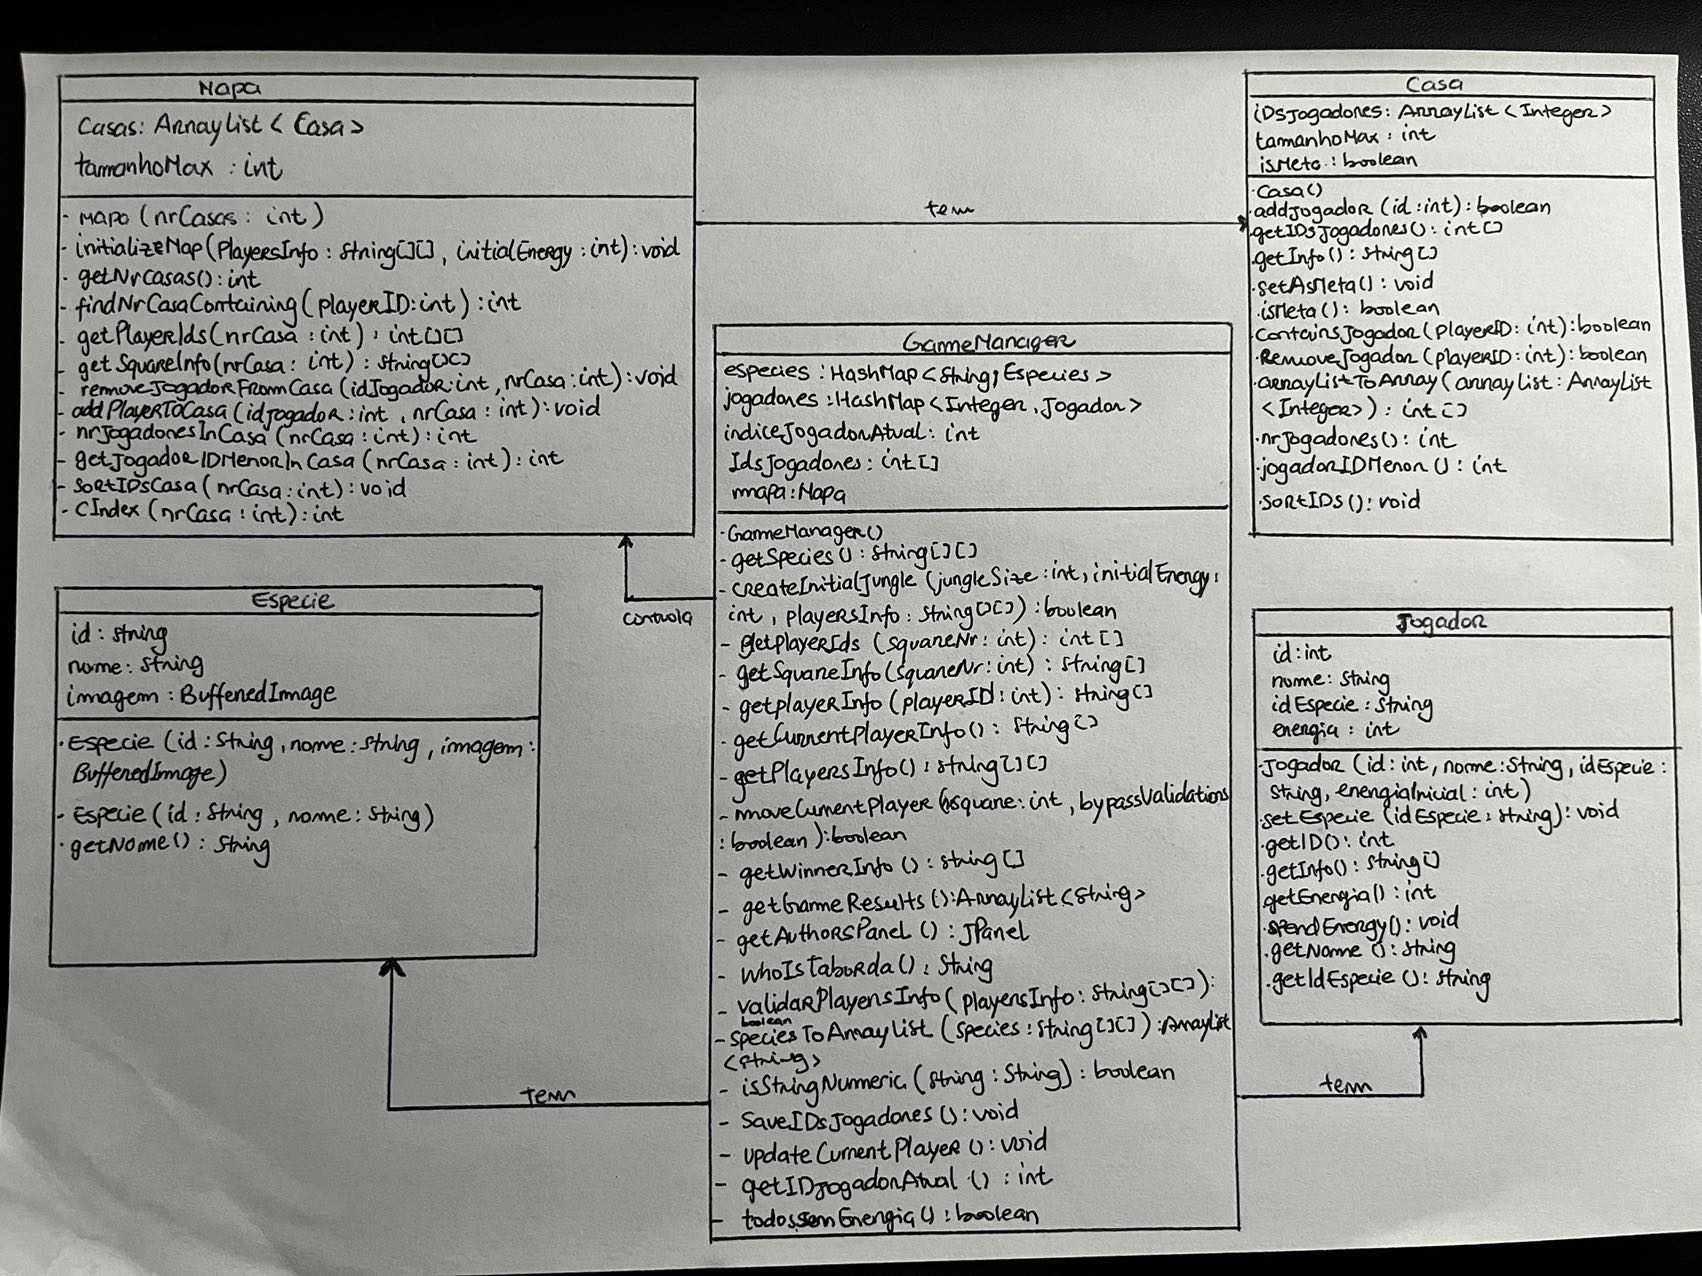 Mapa
Casas: ArrayList<Casa>
tamanhoMax : int
- Mapa (nrCasas : int)
- initializeMap(PlayersInfo : String[][], initialEnergy : int) : void
- getNrCasas() : int
- findNrCasaContaining (playerID: int) : int
- getPlayerIds (nrCasa : int) : int[][]
- getSquareInfo(nrCasa : int) : String[][]
- removeJogadorFromCasa (idJogador: int, nrCasa: int) : void
- addPlayerToCasa (idJogador : int, nrCasa : int) : void
- nrJogadoresInCasa (nrCasa : int) : int
- getJogadorIDMenorInCasa (nrCasa : int) : int
- SortIDsCasa (nrCasa : int) : void
- CIndex (nrCasa : int) : int
tem
Casa
iDsJogadores: ArrayList<Integer>
tamanhoMax : int
isMeta : boolean
·Casa()
·addJogador (id : int) : boolean
·getIDsJogadores() : int[]
·getInfo() : String[]
·setAsMeta() : void
·isMeta() : boolean
·ContainsJogador (playerID : int) : boolean
·RemoveJogador (playerID : int) : boolean
·arrayListToArray (arrayList : ArrayList
<Integer>) : int[]
·nrJogadores() : int
·jogadorIDMenor () : int
·sortIDs() : void
controla
GameManager
especies : HashMap<String, Especies>
jogadores : HashMap<Integer, Jogador>
indiceJogadorAtual : int
IdsJogadores : int[]
mapa : Mapa
·GameManager()
- getSpecies() : String[][]
- createInitialJungle (jungleSize : int, initialEnergy :
int, playersInfo : String[][]) : boolean
- getPlayerIds (squareNr : int) : int[]
- getSquareInfo(squareNr : int) : String[]
- getplayerInfo (playerID : int) : String[]
- getCurrentPlayerInfo() : String[]
- getPlayersInfo() : String[][]
- moveCurrentPlayer (nsquare : int, bypassValidations
: boolean) : boolean
- getWinnerInfo () : String[]
- getGameResults () : ArrayList<String>
- getAuthorsPanel () : JPanel
- whoIsTaborda() : String
- validarPlayersInfo (playersInfo : String[][]) :
boolean
- SpeciesToArrayList (species : String[][]) : ArrayList
<String>
- isStringNumeric (string : String) : boolean
- SaveIDsJogadores () : void
- updateCurrentPlayer () : void
- getIDJogadorAtual () : int
- todosSemEnergia () : boolean
Especie
id : String
nome : String
imagem : BufferedImage
·Especie (id : String, nome : String, imagem :
BufferedImage)
- Especie (id : String, nome : String)
·getNome () : String
tem
Jogador
id : int
nome : String
idEspecie : String
energia : int
·Jogador (id : int, nome : String, idEspecie :
String, energiaInicial : int)
·setEspecie (idEspecie : String) : void
·getID() : int
·getInfo() : String[]
·getEnergia() : int
·spendEnergy() : void
·getNome () : String
·getIdEspecie () : String
tem